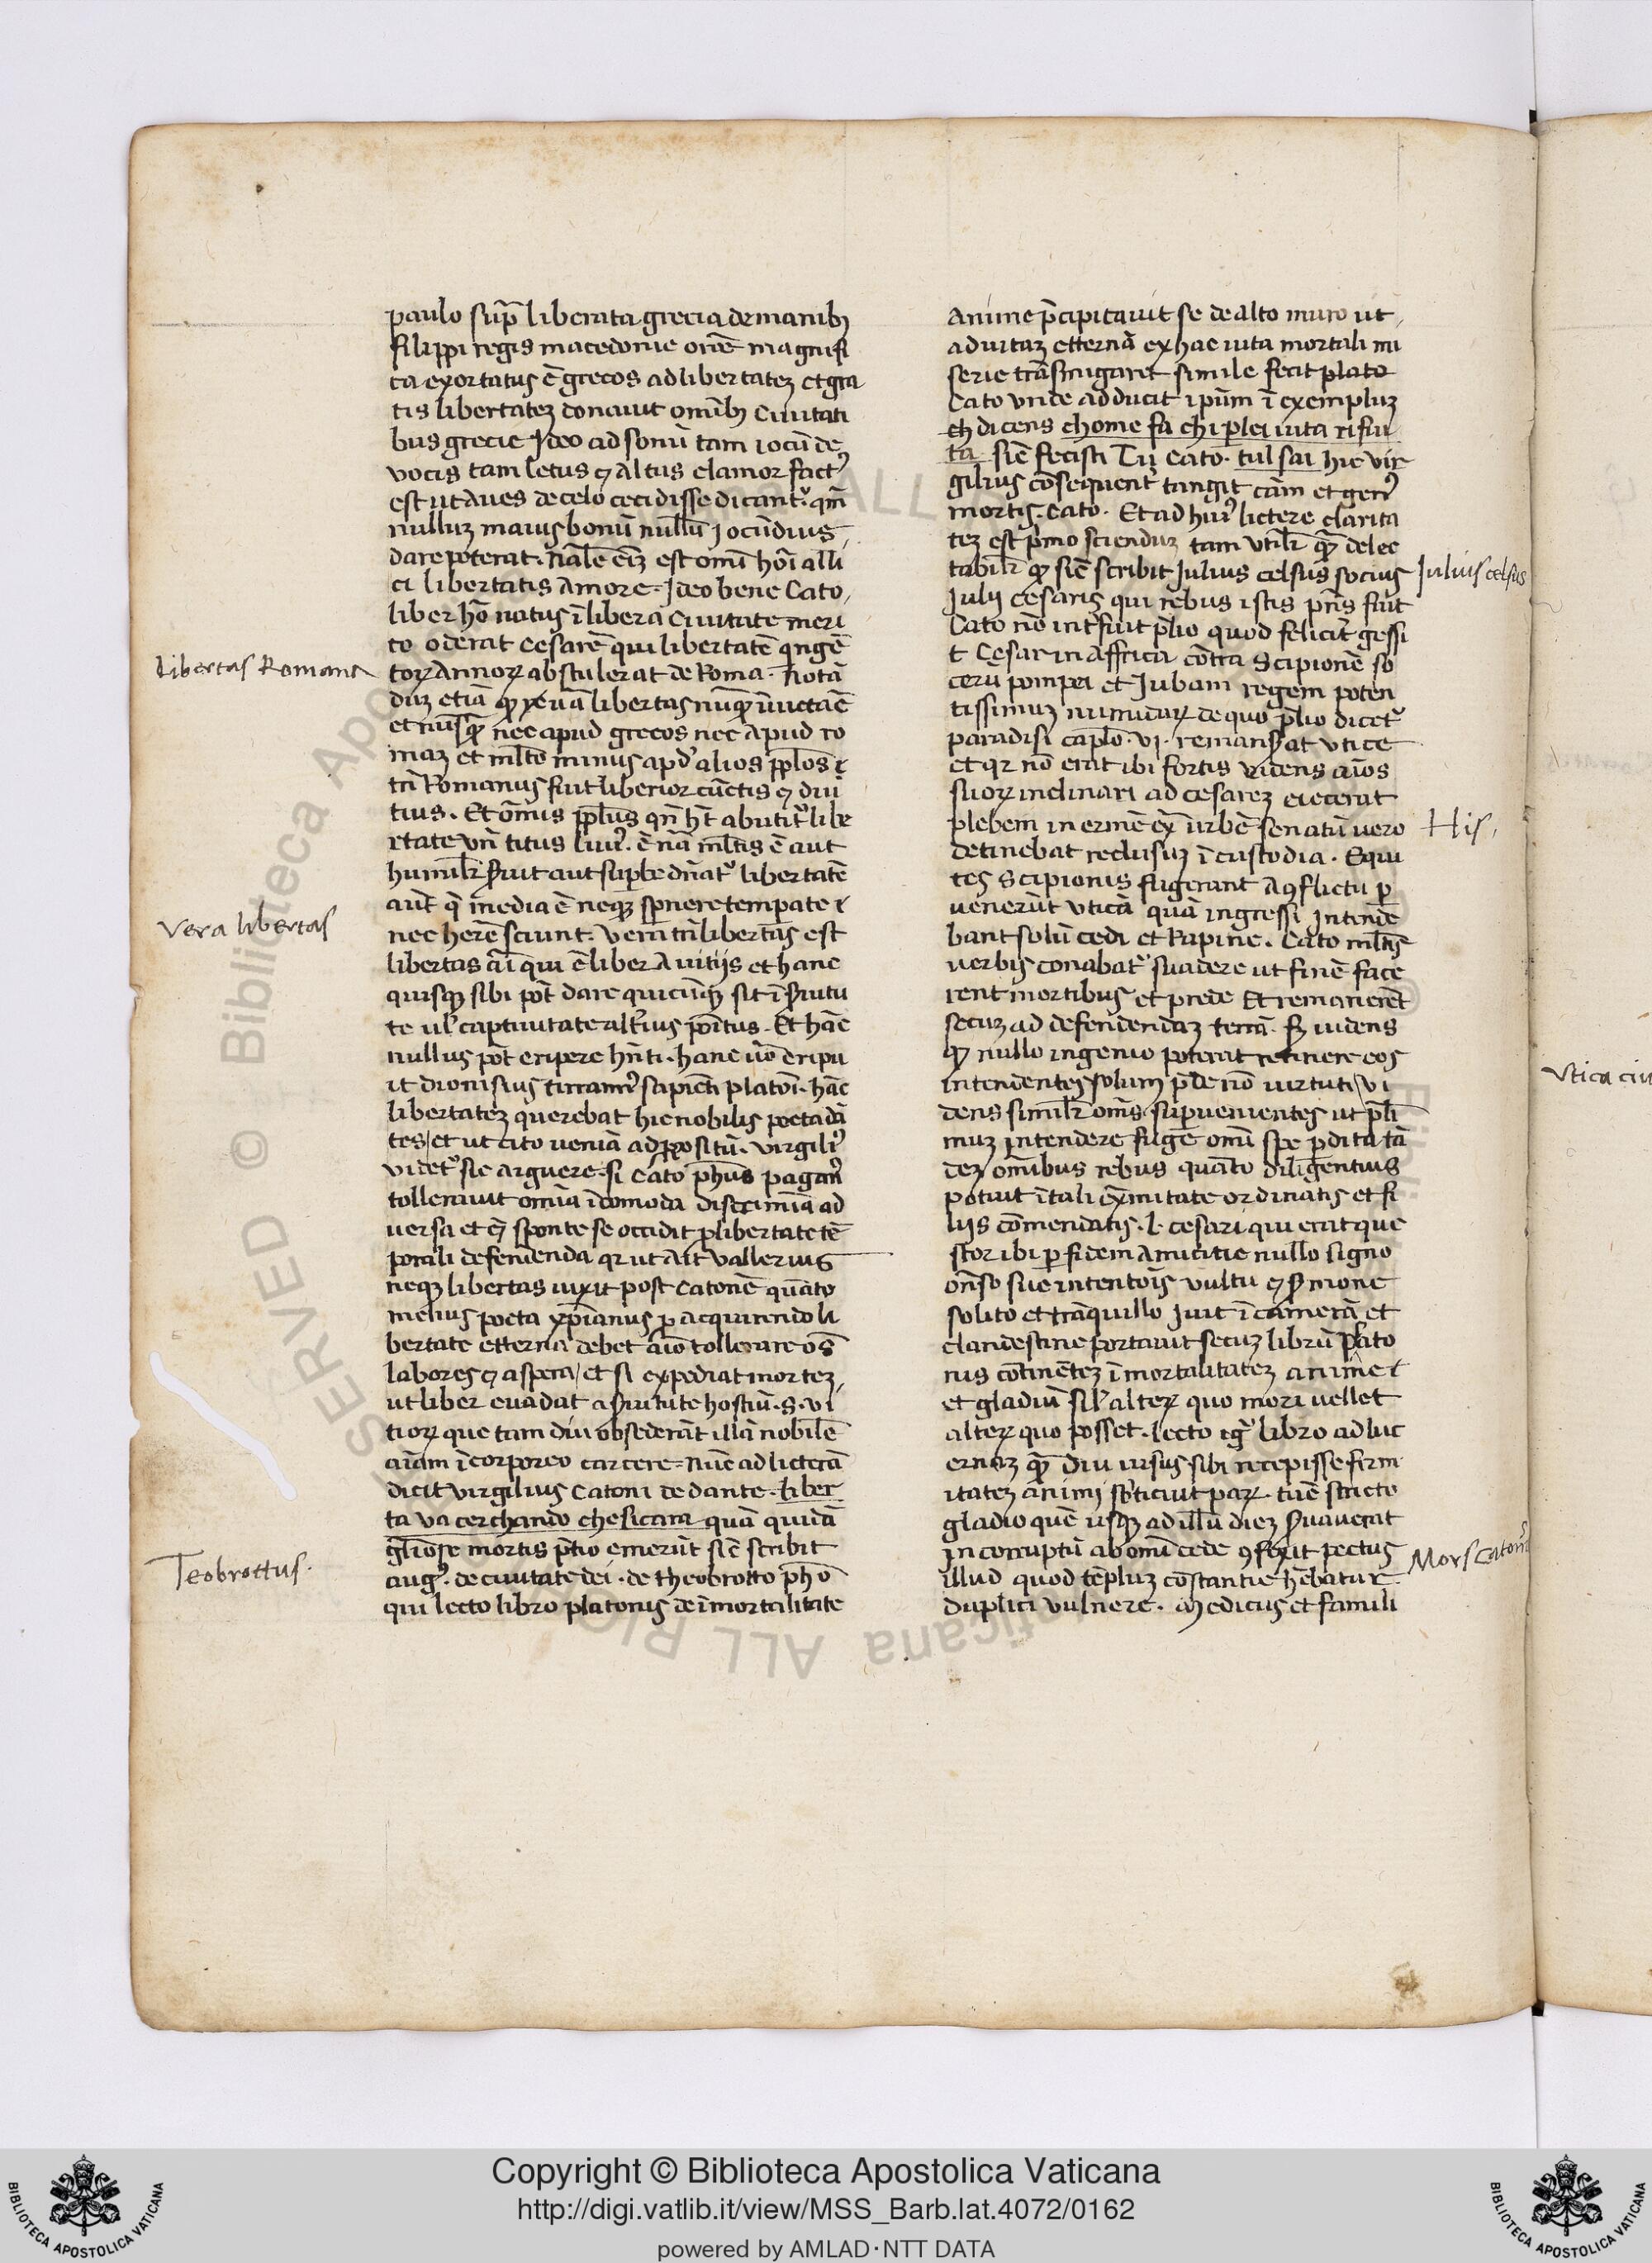 paulo sup̄ liberata grecia de manibꝫ
filippi regis macedonie or̄ōe magnifi
ca exortatus ē grecos ad libertateꝫ et gra
tis libertateꝫ donauit om̄ibꝫ Ciuitati
bus grecie Ideo ad sonū tam iocūde
vocis tam letus ⁊ altus clamor fact᷒
est ut aues de celo cecidisse dicant᷑. qm̄
nulluꝫ maius bonū nullū Jocūdius
dare poterat. nāle eīꝫ est om̄i hōi alli
ci libertatis amore. Ideo bene Cato
liber hō natus ī libera Ciuitate meri
to oderat Cesarē qui libertatē qngē
toꝝ annoꝝ abstulerat de Roma. Notā
duꝫ etiā ꝙ uā libertas nūꝙ īuēta ē
et nūsꝙ nec apud grecos nec apud ro
maꝫ et ml̄to minus apd᷒ alios pplōs
tn̄ Romanus fuit liberior cūctis ⁊ diu
tius. Et ōmis pplus qn̄ hꝫ abutit᷑ libe
rtate vn̄ titus liui᷒. ē nā ml̄tis ē aut
humil̄r ẜuit aut suꝑbe dn̄at᷑ libertatē
aūt q̄ media ē neqꝫ spnere temꝑate
nec hēre sciunt. Vera tn̄ libertas est
libertas aī qui ē liber a uitijs et hanc
quisqꝫ sibi pōt dare quicūqꝫ sit ī ẜuitu
te ul᷒ captiuitate alt᷑ius poītus. Et hāc
nullus pōt eripere hn̄ti. hanc nō eripu
it dionisius tirrann᷒ sapiēti platoī. hāc
libertateꝫ querebat hic nobilis poeta dā
tes / et ut cito ueniā ad ꝓpositū. Virgili᷒
videt᷑ sic arguere. si Cato ph̄us pagan᷒
tollerauit omīa īcomoda discrimīa ad
uersa et q̄ sponte se occidit ꝓ libertate tē
porali defendenda qꝛ ut ait Vallerius
neqꝫ libertas uixit post Catonē quāto
melius poeta xp̄ianus ꝓ acquirendo li
bertate etterna debet aīo tollerare oēs
labores ⁊ aspera / et si expediat morteꝫ
ut liber euadat a ẜuitute hostiū. s. vi
tioꝝ que tam diu obsederāt illā nobilē
aīam ī corporeo carcere = Nūc ad licterā
dicit Virgilius Catoni de dante. liber
ta va cerchando che si cara quā quidā
gl̄iose mortis p̄tio emerūt sic̄ scribit
aug᷒. de ciuitate dei. de theobrotto ph̄o
qui lecto libro platonis de īmortalitate
Libertas Romana
Vera libertas
Teobrottus.
anime p̄cipitauit se de alto muro ut
ad uitaꝫ etternā ex hac uita mortali mi
serie trāsmigaret simile fecit plato
Cato vnde adducit ipsm̄ ī exempluꝫ
dicens chome fa chi ꝑ lei uita rifiu
ta sic̄ fecisti Tu Cato. tul sai hic vir
gilius consequent᷑ tangit cām et gen᷒
mortis. Cato. Et ad hui᷒ lictere clarita
teꝫ est p̄mo sciēduꝫ tam vtil̄r ꝙ delec
tabil̄r ꝙ sic̄ scribit Julius Celsus socius
Julij Cesaris qui rebus istis pn̄s fuit
Cato nō int᷑fuit p̄lio quod felicit᷑ gessi
t Cesar in affrica cōtra Scipionē so
cerū pompei et Jubam regem poten
tissimuꝫ numidaꝝ de quo p̄lio dicet᷑
paradisi caplo. vi. remanẜat vtice
et qꝛ nō erat ibi fortis videns aīos
suoꝝ inclinari ad cesareꝫ eiecerat
plebem in ermē ex urbe senatū uero
detinebat reclusuꝫ ī custodia. Equi
tes Scipionis fugerant a ꝯflictu ꝑ
uenerūt vticā quā ingressi intende
bant solū cedi et Rapine. Cato ml̄tis
uerbis conabat᷑ suadere ut finē face
rent mortibus et prede Et remanerēt
secuꝫ ad defendendaꝫ terrā. sꝫ uidens
ꝙ nullo ingenio poterat retinere eos
intendentes solum p̄de nō uirtuti / vi
dens simil̄r omīs suꝑuenientes ut pl̄i
muꝫ intendere fuge om̄i spe ꝑdita tā
deꝫ omībus rebus quāto diligentius
potuit ī tali exmitate ordinatis et fi
lijs commendatis. L. cesari qui erat que
stor ibi ꝑ fidem amicitie nullo signo
onſo sue intentōis vultu ⁊ ẜmone
solito et tranquillo iuit ī camerā et
clandestine portauit secuꝫ librū plato
nis cōtinēteꝫ īmortalitateꝫ anime
et gladiū sil᷒ alteꝝ quo mori uellet
alteꝝ quo posset. lecto igr᷑ libro ad luc
ernaꝫ ꝙ diu uisus sibi recepisse firm
itateꝫ animi sb̄ticuit paꝝ. tūc stricto
gladio quē usqꝫ ad illū dieꝫ ẜuauerat
in corruptū ab omī cede ꝯfoxit pectus
illud quod tēpluꝫ constantie hēbatur
duplici vulnere. Medicus et famili
Julius celsus
His.
Mors Caton᷒